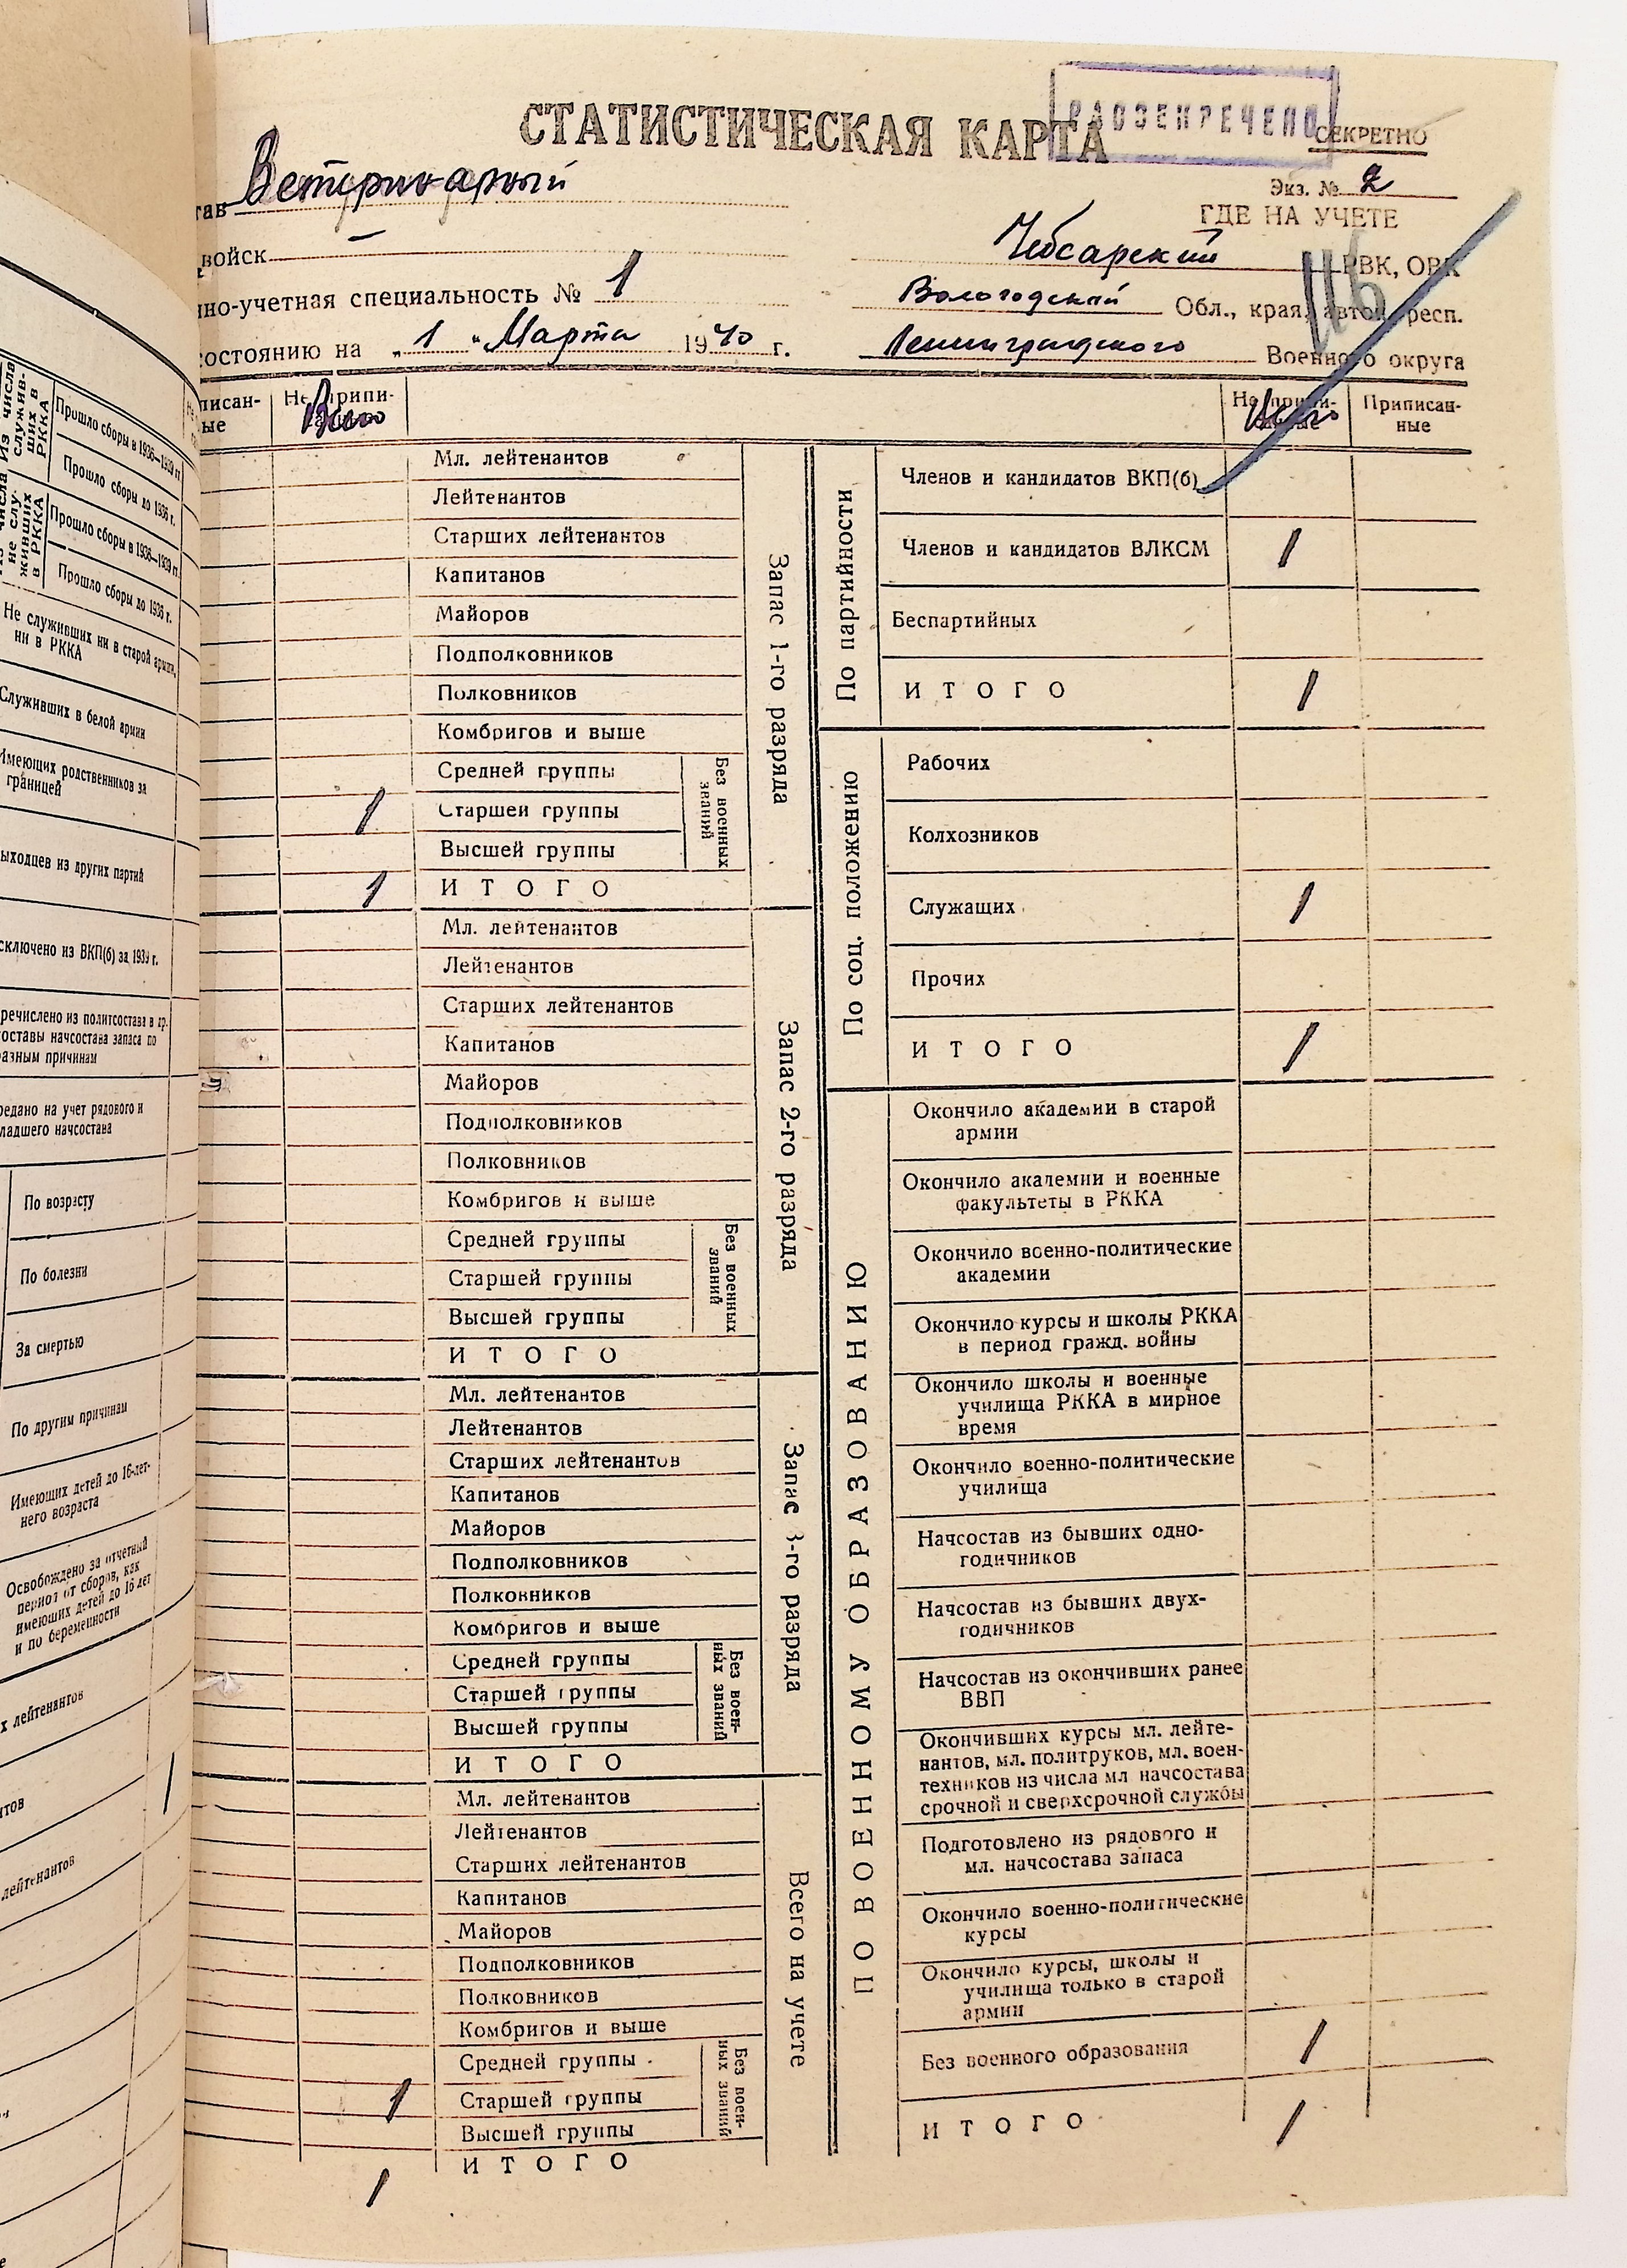 СТАТИСТИЧЕСКАЯ КАРТА
РАСЗЕКРЕЧЕНО
СЕКРЕТНО
Экз. № 2
тав Ветеринарный
ГДЕ НА УЧЕТЕ
войск —
Чебсарский РВК, ОВК
116
нно-учетная специальность № 1
Вологодский Обл., края, автон. респ.
состоянию на „ 1 " Марта 1940 г.
Ленинградского Военного округа
писан-
ные
Не припи-
Всего
Не припи-
санные
Всего
Приписан-
ные
Запас 1-го разряда
Мл. лейтенантов
Лейтенантов
Старших лейтенантов
Капитанов
Майоров
Подполковников
Полковников
Комбригов и выше
Без военных званий
Средней группы
1 Старшей группы
Высшей группы
1 ИТОГО
Запас 2-го разряда
Мл. лейтенантов
Лейтенантов
Старших лейтенантов
Капитанов
Майоров
Подполковников
Полковников
Комбригов и выше
Без военных званий
Средней группы
Старшей группы
Высшей группы
ИТОГО
Запас 3-го разряда
Мл. лейтенантов
Лейтенантов
Старших лейтенантов
Капитанов
Майоров
Подполковников
Полковников
Комбригов и выше
Без воен-
ных званий
Средней группы
Старшей группы
Высшей группы
ИТОГО
Всего на учете
Мл. лейтенантов
Лейтенантов
Старших лейтенантов
Капитанов
Майоров
Подполковников
Полковников
Комбригов и выше
Без воен-
ных званий
Средней группы
1 Старшей группы
Высшей группы
1 ИТОГО
По партийности
Членов и кандидатов ВКП(б)
Членов и кандидатов ВЛКСМ 1
Беспартийных
ИТОГО 1
По соц. положению
Рабочих
Колхозников
Служащих 1
Прочих
ИТОГО 1
ПО ВОЕННОМУ ОБРАЗОВАНИЮ
Окончило академии в старой
армии
Окончило академии и военные
факультеты в РККА
Окончило военно-политические
академии
Окончило курсы и школы РККА
в период гражд. войны
Окончило школы и военные
училища РККА в мирное
время
Окончило военно-политические
училища
Начсостав из бывших одно-
годичников
Начсостав из бывших двух-
годичников
Начсостав из окончивших ранее
ВВП
Окончивших курсы мл. лейте-
нантов, мл. политруков, мл. воен-
техников из числа мл начсостава
срочной и сверхсрочной службы
Подготовлено из рядового и
мл. начсостава запаса
Окончило военно-политические
курсы
Окончило курсы, школы и
училища только в старой
армии
Без военного образования 1
ИТОГО 1
Из числа
служив-
ших в
РККА
Прошло сборы в 1936—1939 гг.
Прошло сборы до 1936 г.
не слу-
живших
в РККА
Прошло сборы в 1936—1939 гг.
Прошло сборы до 1936 г.
Не служивших ни в старой армии,
ни в РККА
Служивших в белой армии
Имеющих родственников за
границей
ыходцев из других партий
сключено из ВКП(б) за 1939 г.
речислено из политсостава в др.
оставы начсостава запаса по
азным причинам
редано на учет рядового и
ладшего начсостава
По возрасту
По болезни
За смертью
По другим причинам
Имеющих детей до 16-лет-
него возраста
Освобождено за отчетный
период от сборов, как
имеющих детей до 16 лет
и по беременности
х лейтенантов
нтов 1
лейтенантов